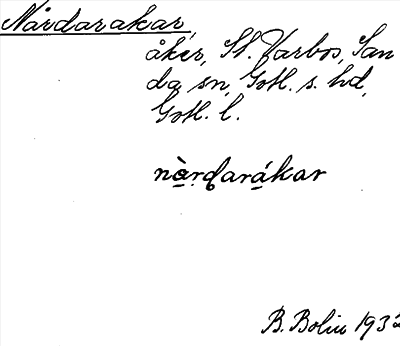 Nårdarakar,
åker, St. Varbos, San
da sn, Gotl. s. hd,
Gotl. l.
nàrdarákar
B. Bolin 1932